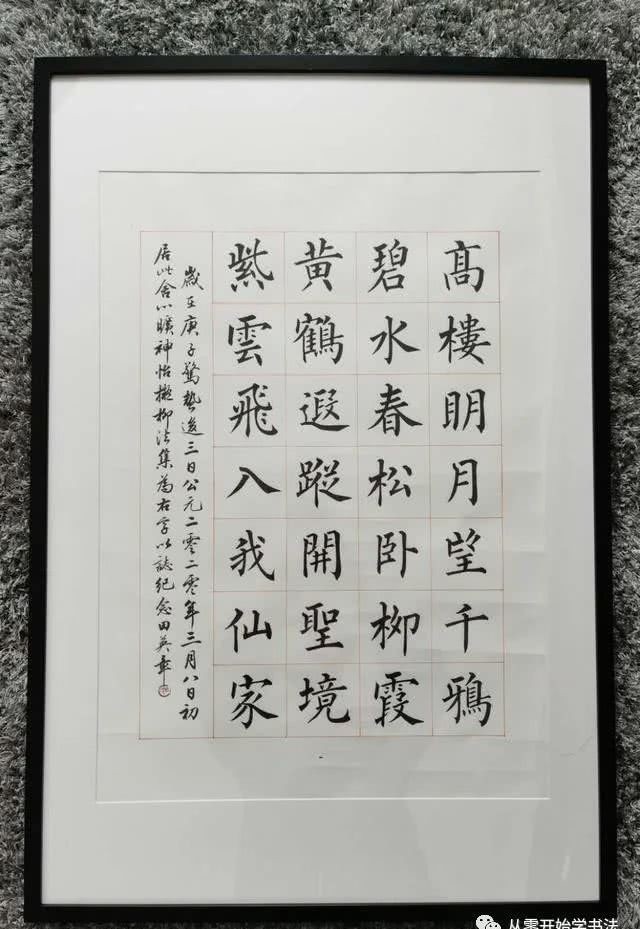 高樓明月望千鴉
碧水春松卧柳霞
黄鶴遐蹤開聖境
紫雲飛入我仙家
歲在庚子驚蟄後三日公元二零二零年三月八日初
居此舍心曠神怡擬柳法集為右字以誌紀念田英章
从零开始学书法